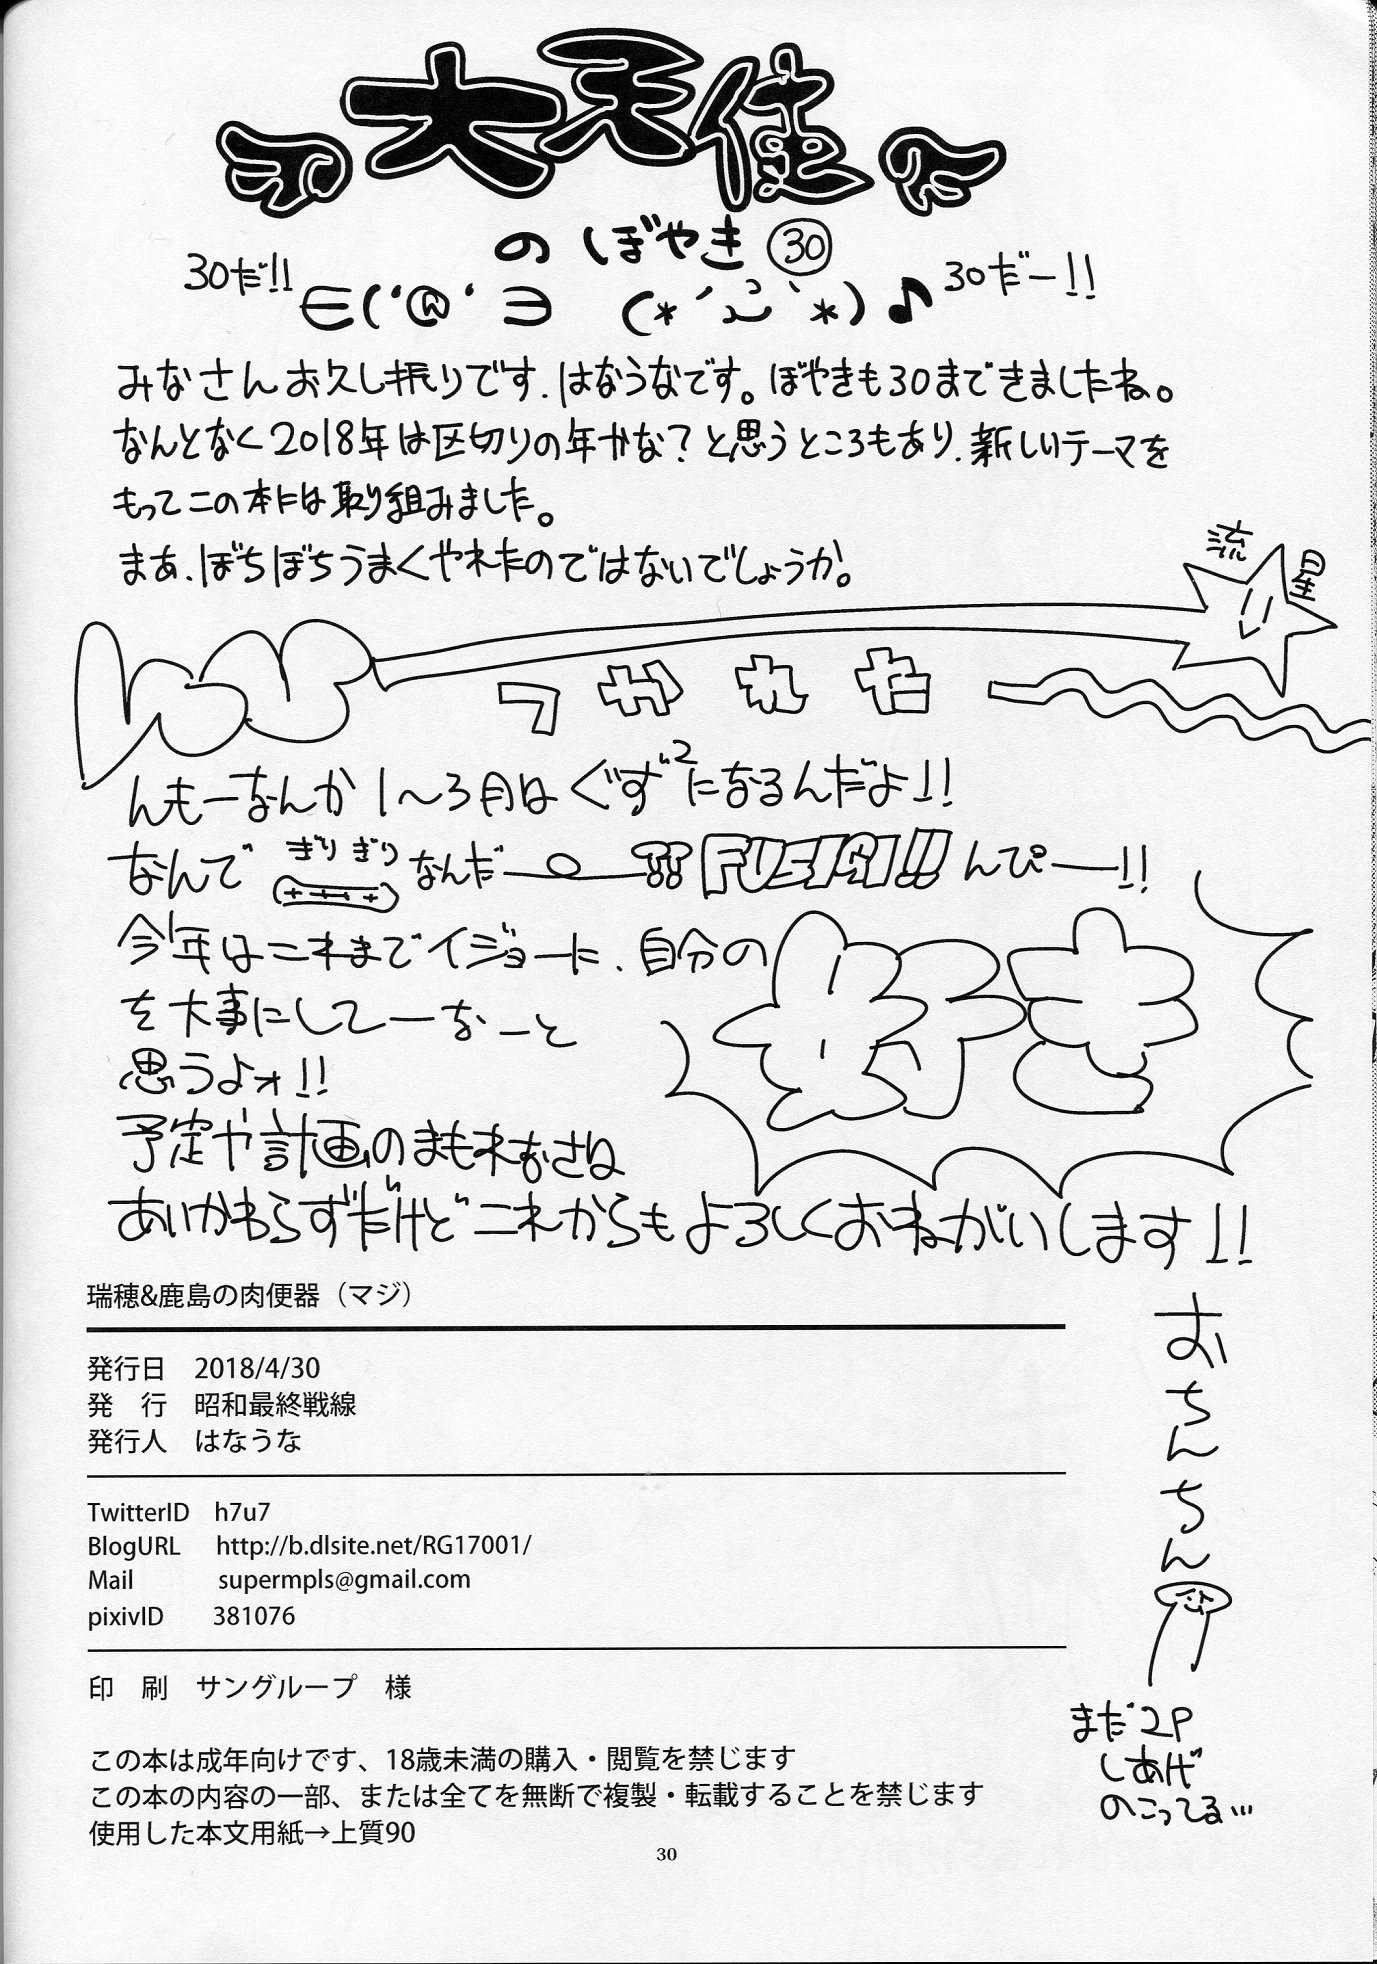 大天使
のぼやき㉚
30だ!!
30だー!!
∈(‘@‘ ∋ (*´ ｀*)♪
みなさんお久し振りです、はなうなです。ぼやきも30まできましたね。
なんとなく2018年は区切りの年かな?と思うところもあり、新しいテーマを
もってこの本には取り組みました。
まあ、ぼちぼちうまくやれたのではないでしょうか。
流星
つかれた
んもーなんか1〜3月はぐず²になるんだよ!!
なんで ぎりぎり なんだー⁇ FUSIGI!! んぴー!!
今年はこれまでイジョーに、自分の
好き
を大事にしてーなーと
思うよォ!!
予定や計画のまもれなさは
あいかわらずだけどこれからもよろしくおねがいします!!
瑞穂&鹿島の肉便器（マジ）
発行日　2018/4/30
発　行　昭和最終戦線
発行人　はなうな
TwitterID　h7u7
BlogURL　http://b.dlsite.net/RG17001/
Mail　supermpls@gmail.com
pixivID　381076
印　刷　サングループ　様
この本は成年向けです、18歳未満の購入・閲覧を禁じます
この本の内容の一部、または全てを無断で複製・転載することを禁じます
使用した本文用紙→上質90
おちんちん
まだ2P
しあげ
のこってる…
30